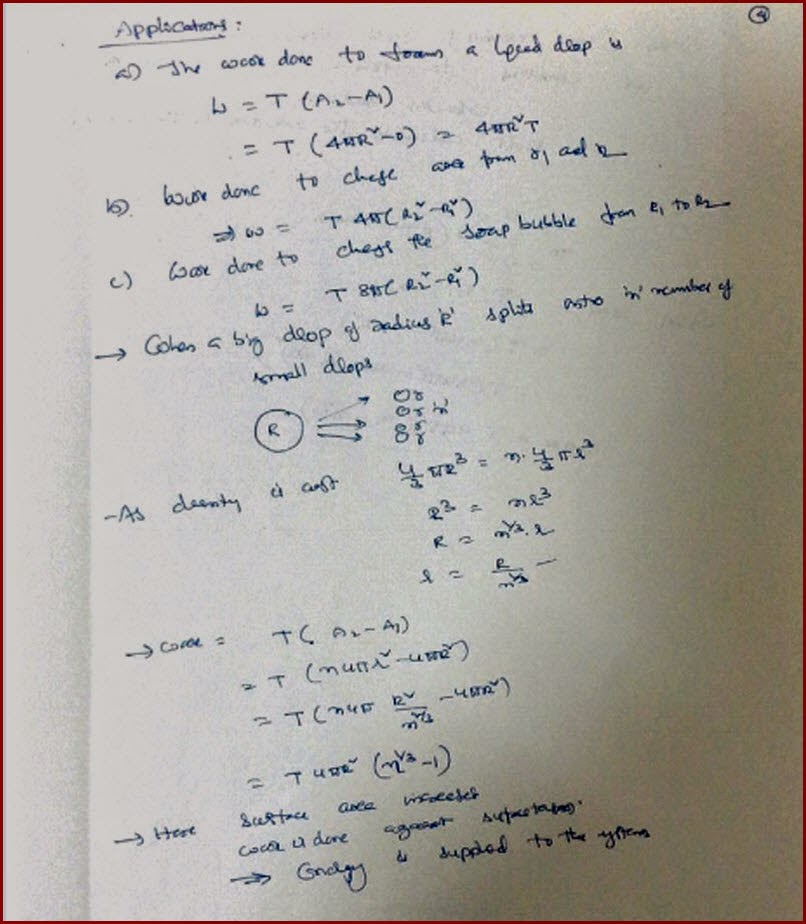 4
Applications:
a) The work done to form a liquid drop is
W = T (A₂-A₁)
= T (4πR²-0) = 4πR²T
b). Work done to change area from r₁ and r₂
⇒ W = T 4π(R₂²-R₁²)
c) Work done to change the soap bubble from R₁ to R₂
W = T 8π( R₂²-R₁²)
→ When a big drop of radius 'R' splits into 'n' number of
small drops
R
Or
Or 'n'
-As density is const 4/3 πR³ = n. 4/3 πr³
R³ = nr³
R = n^1/3. r
r = R/n^1/3
→ work = T( A₂-A₁)
= T (n4πr²-4πR²)
= T(n4π R²/n^2/3 -4πR²)
= T 4πR² (n^1/3-1)
→ Here surface area increases
work is done against surface tension.
⇒ Energy is supplied to the system